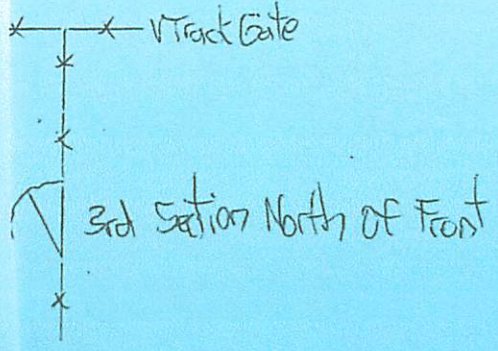 VTrack Gate
3rd Section North of Front